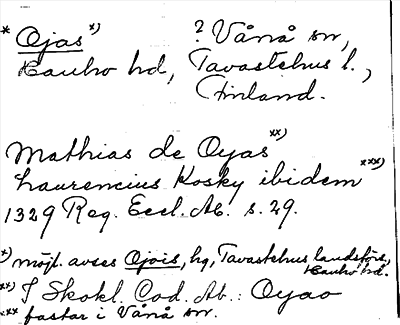 * Ojas x) ? Vånå sn,
Hauho hd, Tavastehus l.,
Finland.
Mathias de Oyas xx)
Laurencius Kosky ibidem xxx)
1329 Reg. Eccl. Ab. s. 29.
x) möjl. avses Ojois, hg, Tavastehus landsförs,
Hauho hd.
xx) I Skokl. Cod. Ab.: Oyao
xxx fastar i Vånå sn.